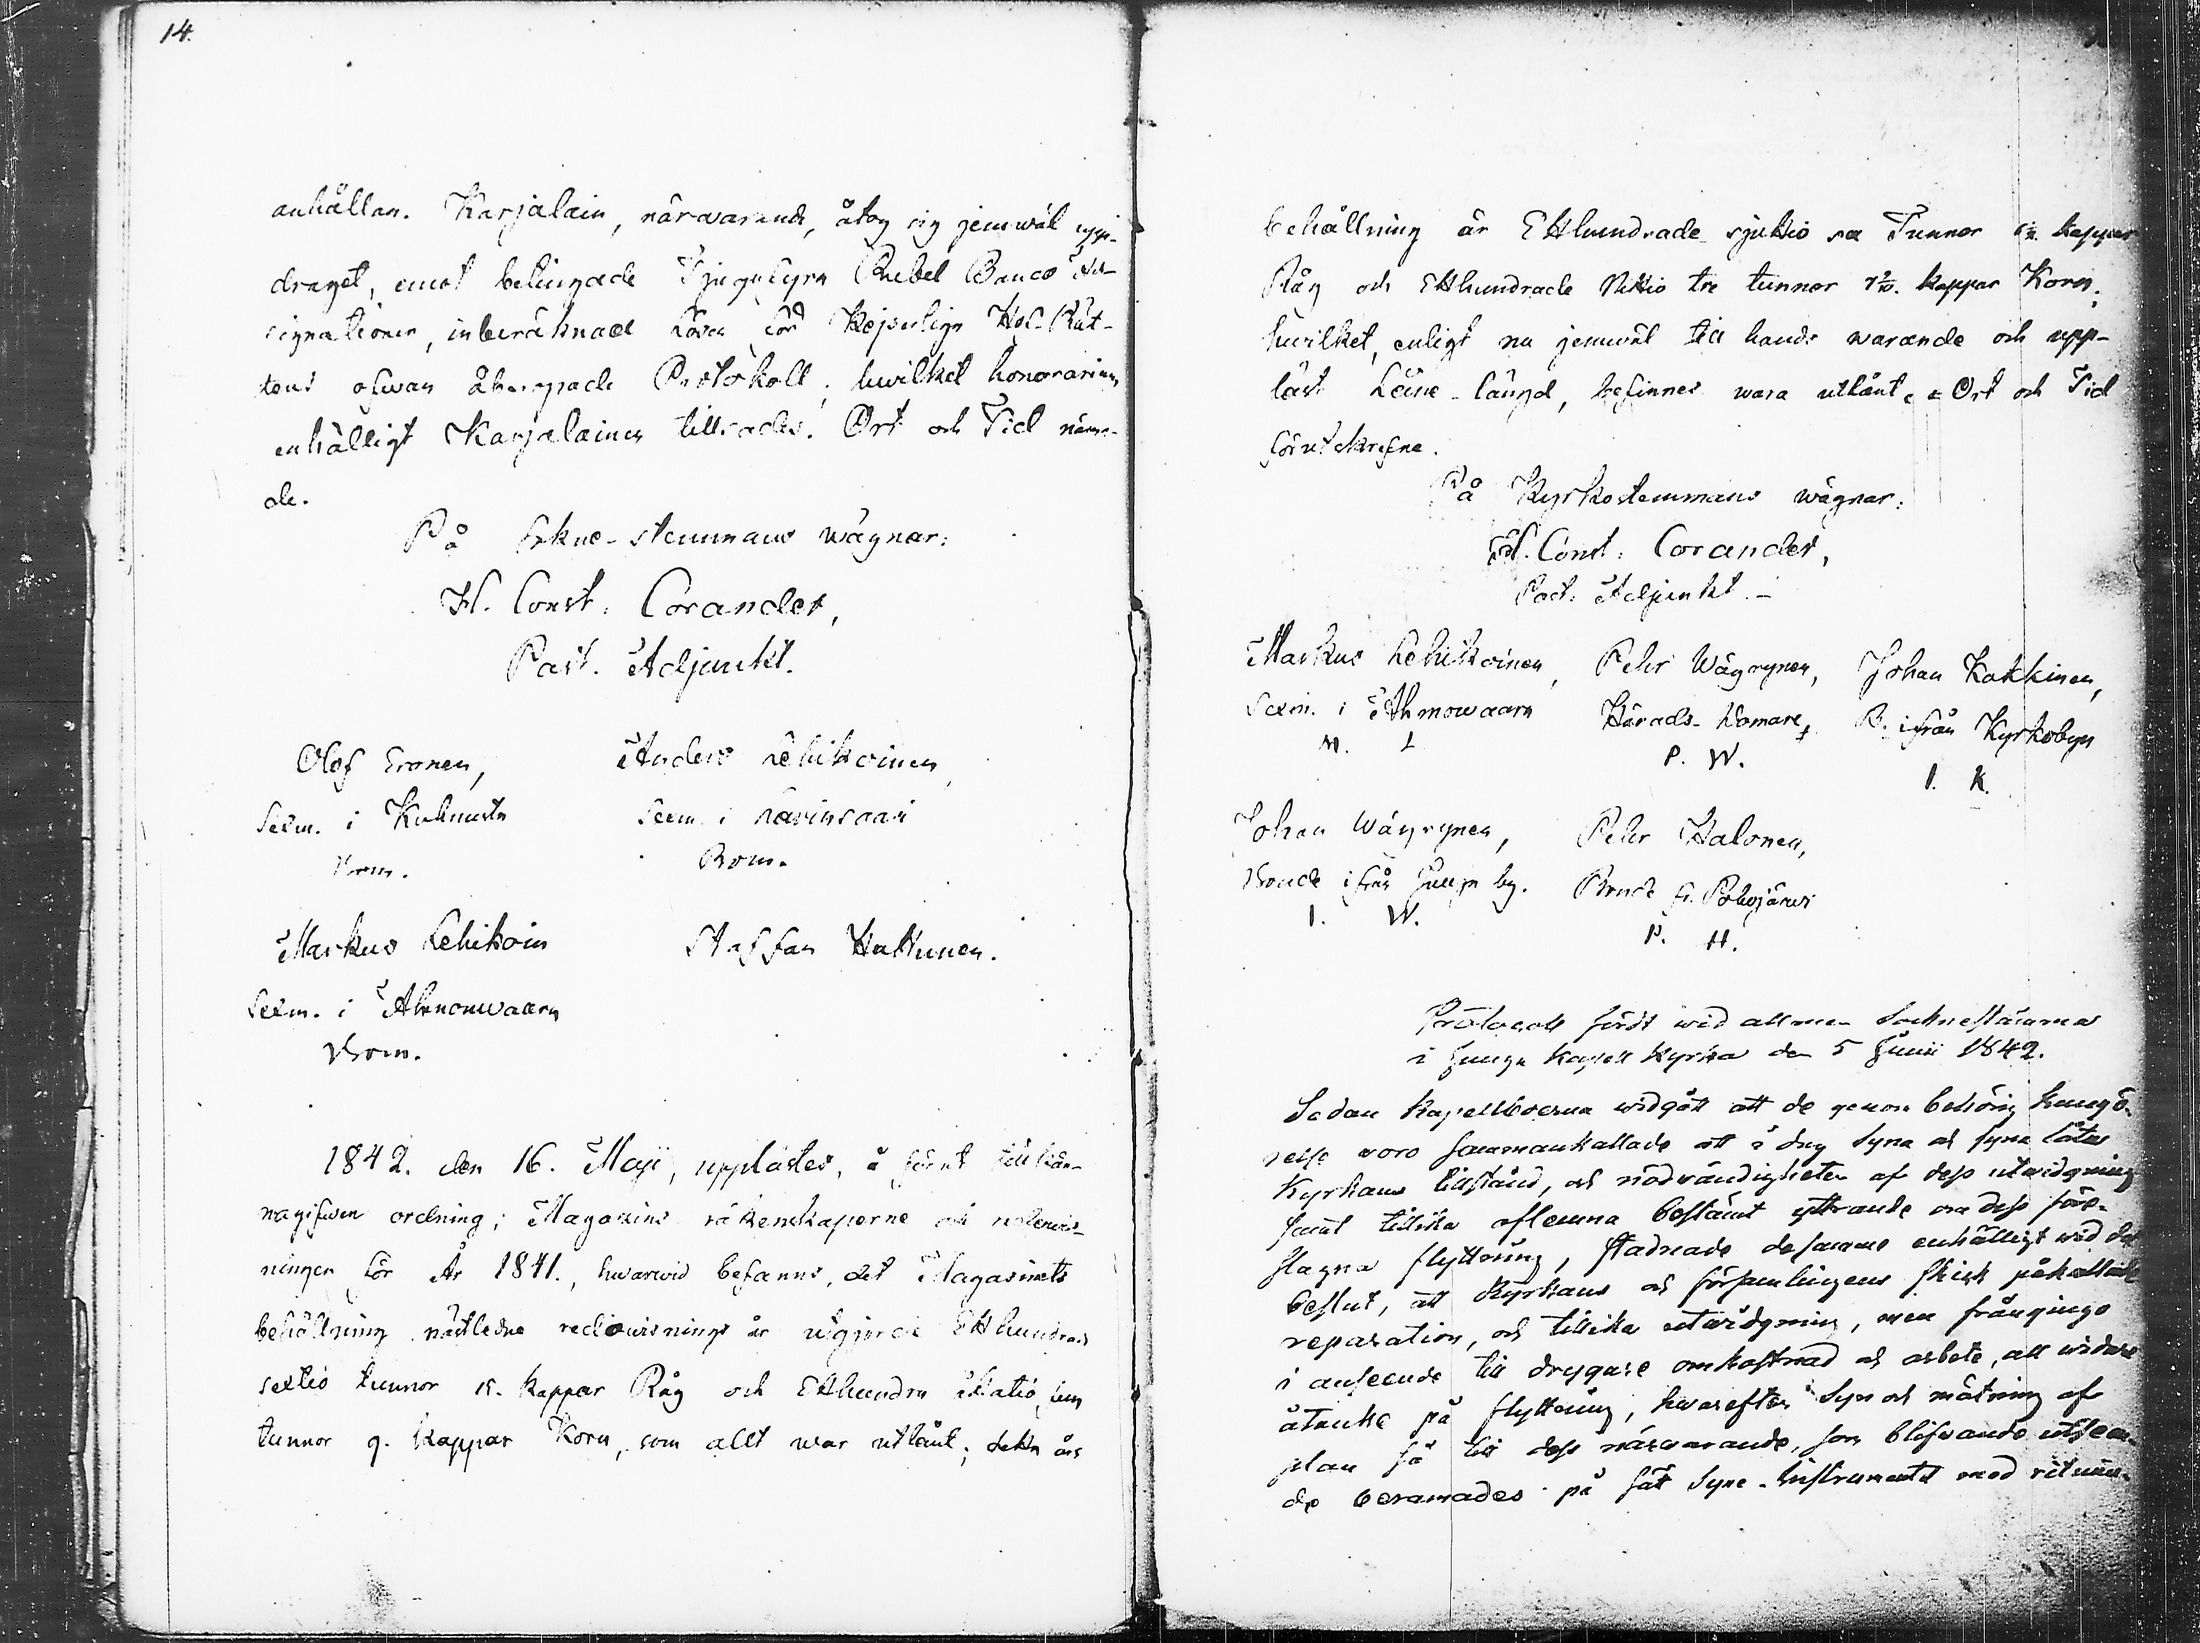 14.
anhållan. Karjalain, närwarande, åtog sig jemwäl upp-
draget, emot betingade Tjugufyra Rubel Banco As-
signationer, inberäknad lösen för Kejserliga Hof-Rät-
tens ofwan åberopade Protokoll; hwilket honorarium
enhälligt Karjalainen tillsades. Ort och Tid nämn-
de.
På Sockne-stemmans wägnar:
H. Const. Corander,
Past. Adjunkt.
Olof Eronen, Anders Lehikoinen,
Sexm. i Kuhnusta Sexm. i
Bom. Bom.
Markus Lehikoin Staffan Hattunen.
Sexm. i Ahmowaara
Bom.
1842. den 16. Maji, upplästes, å förut tillkän-
nagifwen ordning; Magasins räkenskaperne och redowis-
ningen för År 1841., hwarwid befanns, det Magasinets
behållning nästledne redowisnings år utgjorde Etthundrade
sextio tunnor 15. kappar Råg och Etthundra åttatio fem
tunnor 9. kappar Korn, som allt war utlånt; detta års
behållning är Etthundrade sjuttio sex Tunnor kappar
Råg och Etthundrade Nittio tre tunnor kappar Korn;
hwilket, enligt nu jemwäl till hands warande och upp-
läst Låne-längd, befinnes wara utlånt. Ort och Tid
förutskrefne.
På Kyrkostemmans wägnar:
H. Const: Corander,
Past: Adjunkt.
Markus Lehikoinen, Pehr Wäyrynen, Johan Kokkinen,
Sexm. i Ahmowaara Härads-Domare, B. ifrån Kyrkobyn
M. L P. W. I. K.
Johan Wäyrynen, Pehr Halonen,
Bonde ifrån Juuga by. Bonde fr. Polvijärvi
I. W. P. H.
Protocoll fördt wid allmen Sockne stämma
i Juuga Kapell Kyrka den 5 Junii 1842.
Sedan Kapellboerna widgått att de genom behörig kungö-
relse woro sammankallade att i dag syna och syna låta
Kyrkans tillstånd, och nödvändigheten af dess utwidgning
samt tillika aflemna bestämt yttrande om dess före-
slagna flyttning, stadnade desamme enhälligt wid det
beslut, att Kyrkans och församlingens skick påkallade
reparation, och tillika utwidgning, men frångingo
i anseende till drygare omkostnad och arbete, all widare
åtanke på flyttning, hwarefter Syn och mätning af
plan så till dess närvarande, som blifwande utseen-
de beramades på sätt Syne-Instrumentet med ritnin-